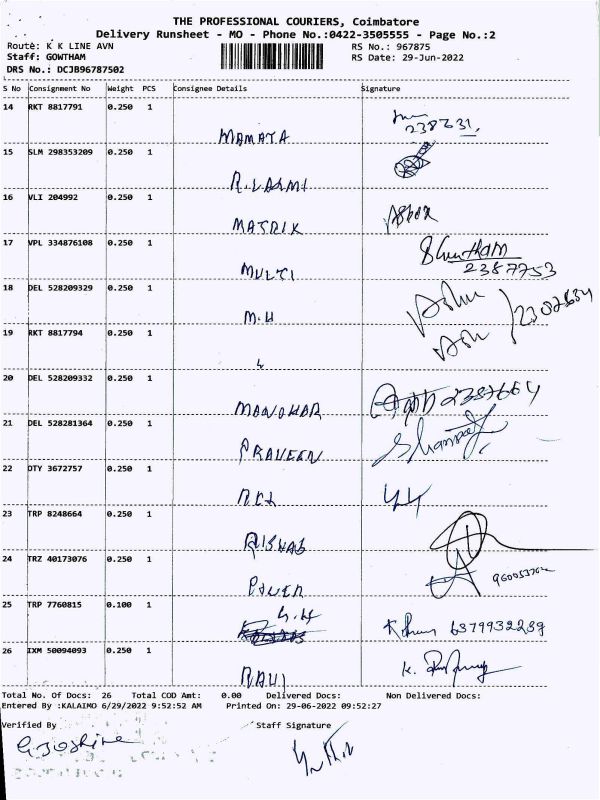 THE PROFESSIONAL COURIERS, Coimbatore
Delivery Runsheet - MO - Phone No.:0422-3505555 - Page No.:2
Route: K K LINE AVN RS No.: 967875
Staff: GOWTHAM RS Date: 29-Jun-2022
DRS No.: DCJB96787502
S No Consignment No Weight PCS Consignee Details Signature
14 RKT 8817791 0.250 1
MAMATA
15 SLM 298353209 0.250 1
R.LAXMI
16 VLI 204992 0.250 1
MATRIK
17 VPL 334876108 0.250 1
MULTI 2387753
18 DEL 528209329 0.250 1
M.H
19 RKT 8817794 0.250 1
20 DEL 528209332 0.250 1
MANOHAR 2387664
21 DEL 528281364 0.250 1
PRAVEEN
22 OTY 3672757 0.250 1
23 TRP 8248664 0.250 1
RISHAB
24 TRZ 40173076 0.250 1
POWER
25 TRP 7760815 0.100 1
6379932239
26 IXM 50094093 0.250 1
RAVI
Total No. Of Docs: 26 Total COD Amt: 0.00 Delivered Docs: Non Delivered Docs:
Entered By :KALAIMO 6/29/2022 9:52:52 AM Printed On: 29-06-2022 09:52:27
Verified By Staff Signature